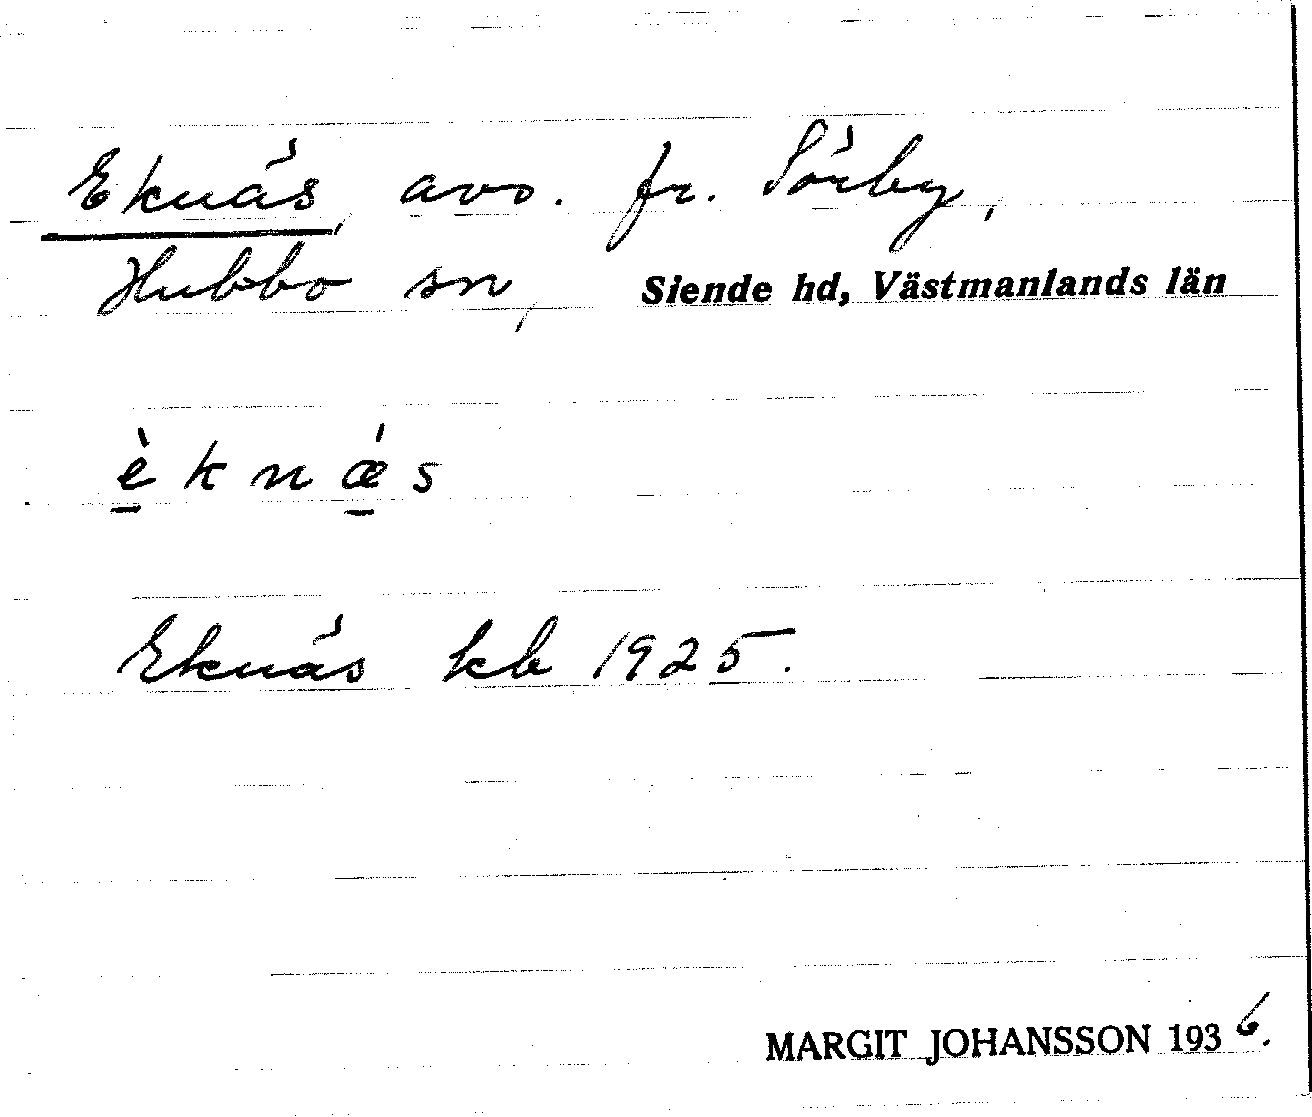 Eknäs, avs. fr. Sörby,
Hubbo sn, Siende hd, Västmanlands län
è̱ k n ǽ̱ s
Eknäs kb 1925.
MARGIT JOHANSSON 1936.